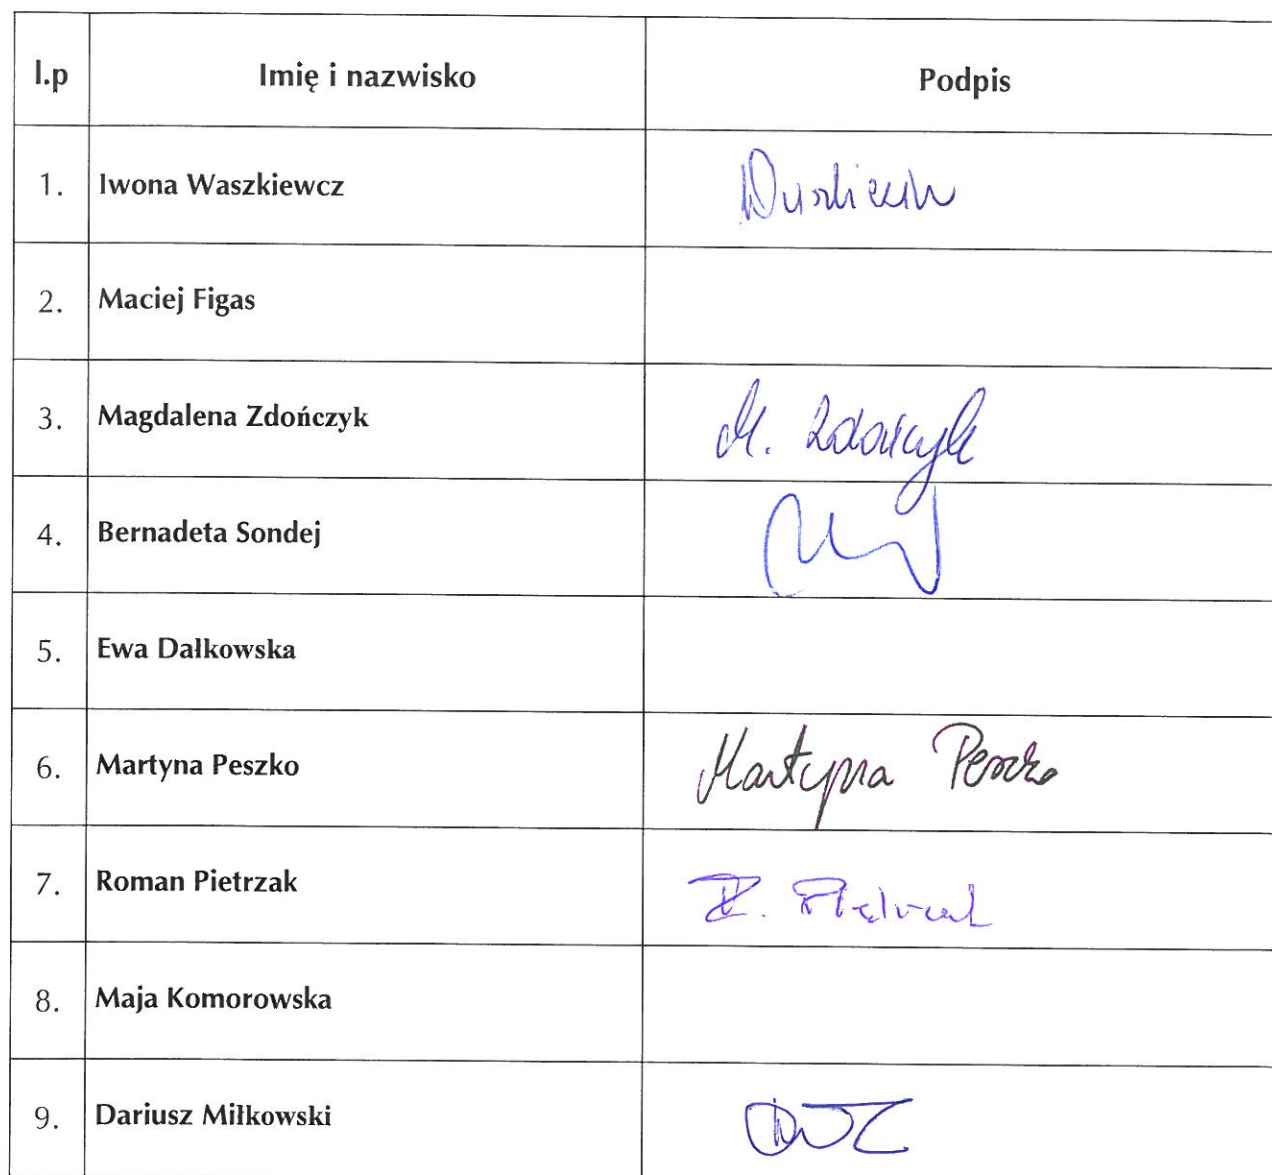 l.p Imię i nazwisko Podpis
1. Iwona Waszkiewcz
2. Maciej Figas
3. Magdalena Zdończyk M. Zdończyk
4. Bernadeta Sondej
5. Ewa Dałkowska
6. Martyna Peszko Martyna Peszko
7. Roman Pietrzak R. Pietrzak
8. Maja Komorowska
9. Dariusz Miłkowski